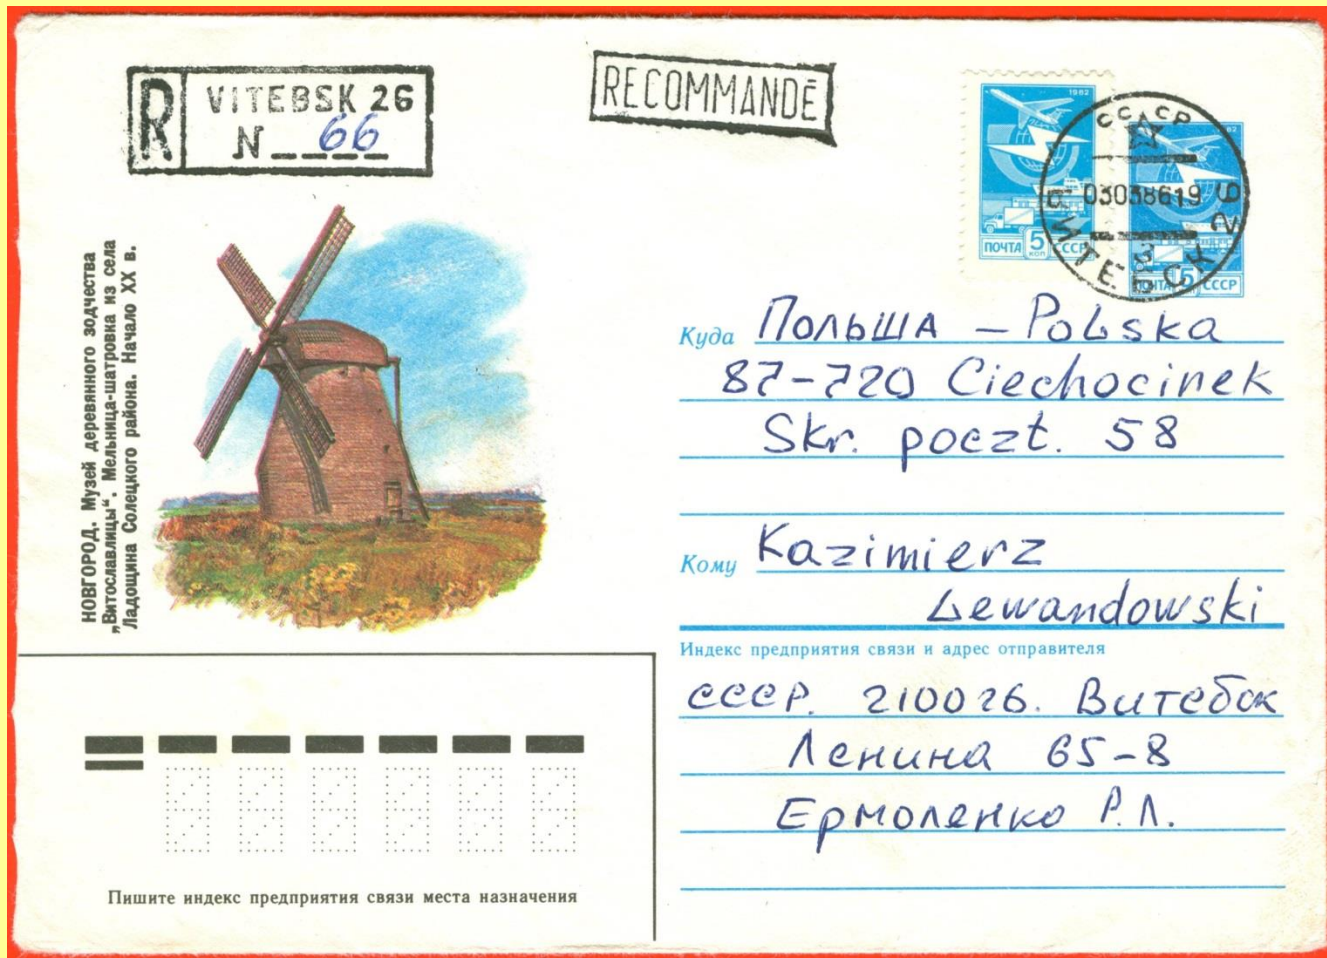 R VITEBSK 26
N 66
RECOMMANDÉ
1982
ПОЧТА 5 КОП СССР
СССР
03038619
ВИТЕБСК 26
ПОЧТА 5 СССР
НОВГОРОД. Музей деревянного зодчества
„Витославлицы“. Мельница-шатровка из села
Ладощина Солецкого района. Начало XX в.
Куда Польша – Polska
87-720 Ciechocinek
Skr. poczt. 58
Кому Kazimierz
Lewandowski
Индекс предприятия связи и адрес отправителя
СССР. 210026. Витебск
Ленина 65-8
Ермоленко Р.Л.
Пишите индекс предприятия связи места назначения